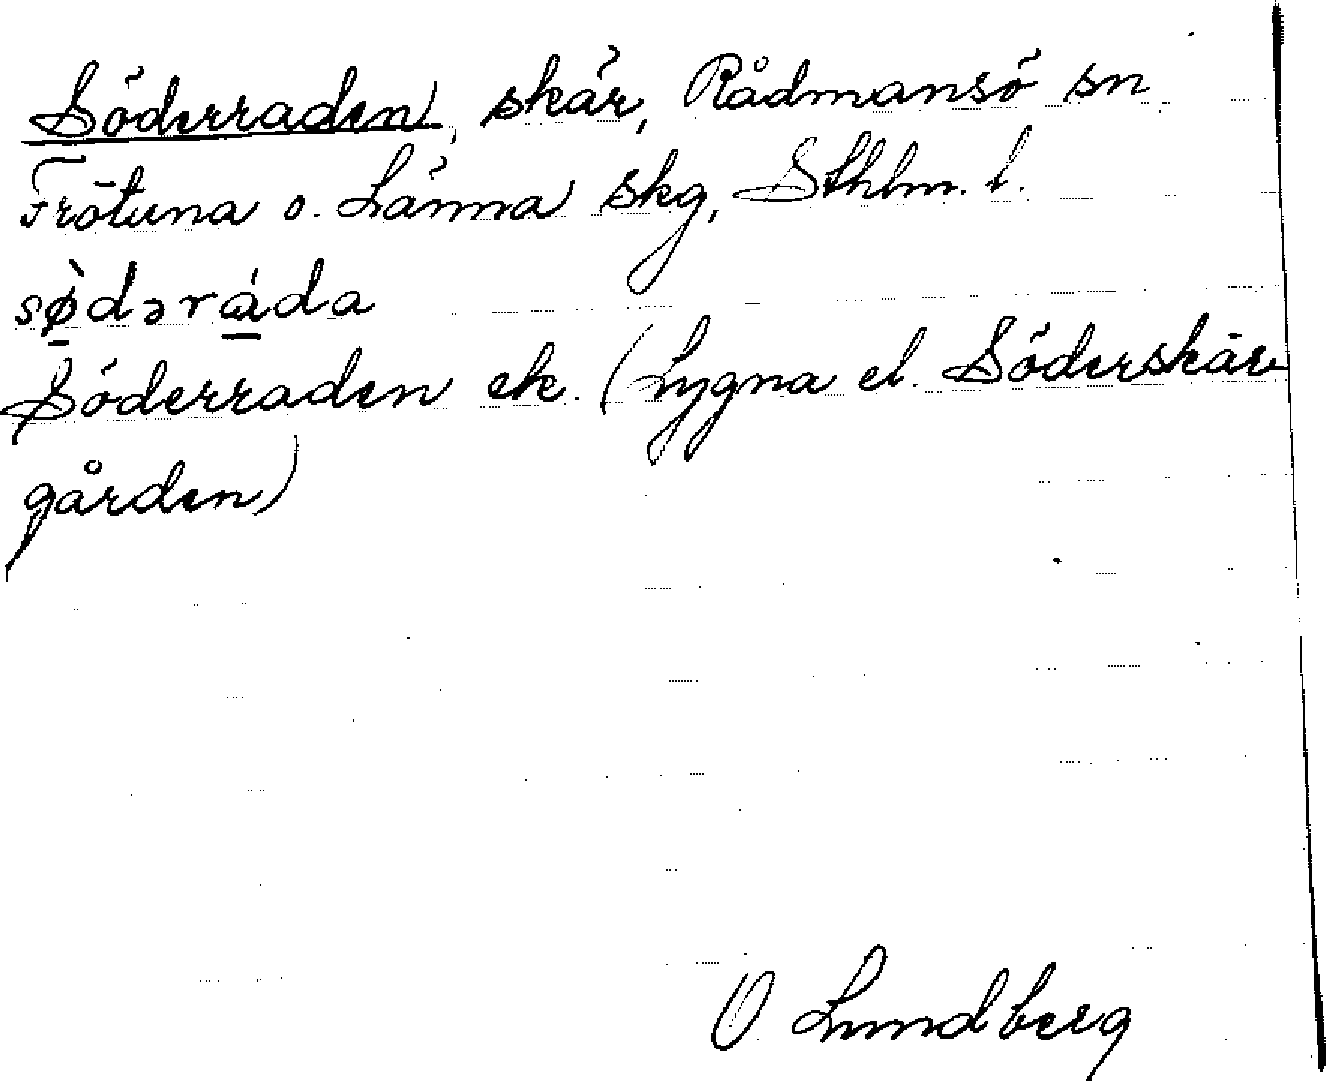 Söderraden, skär, Rådmansö sn
Frötuna o. Länna skg, Sthlm. l.
sø̀dəráda
Söderraden ek. (Lygna el. Söderskärs
gården)
O Lundberg